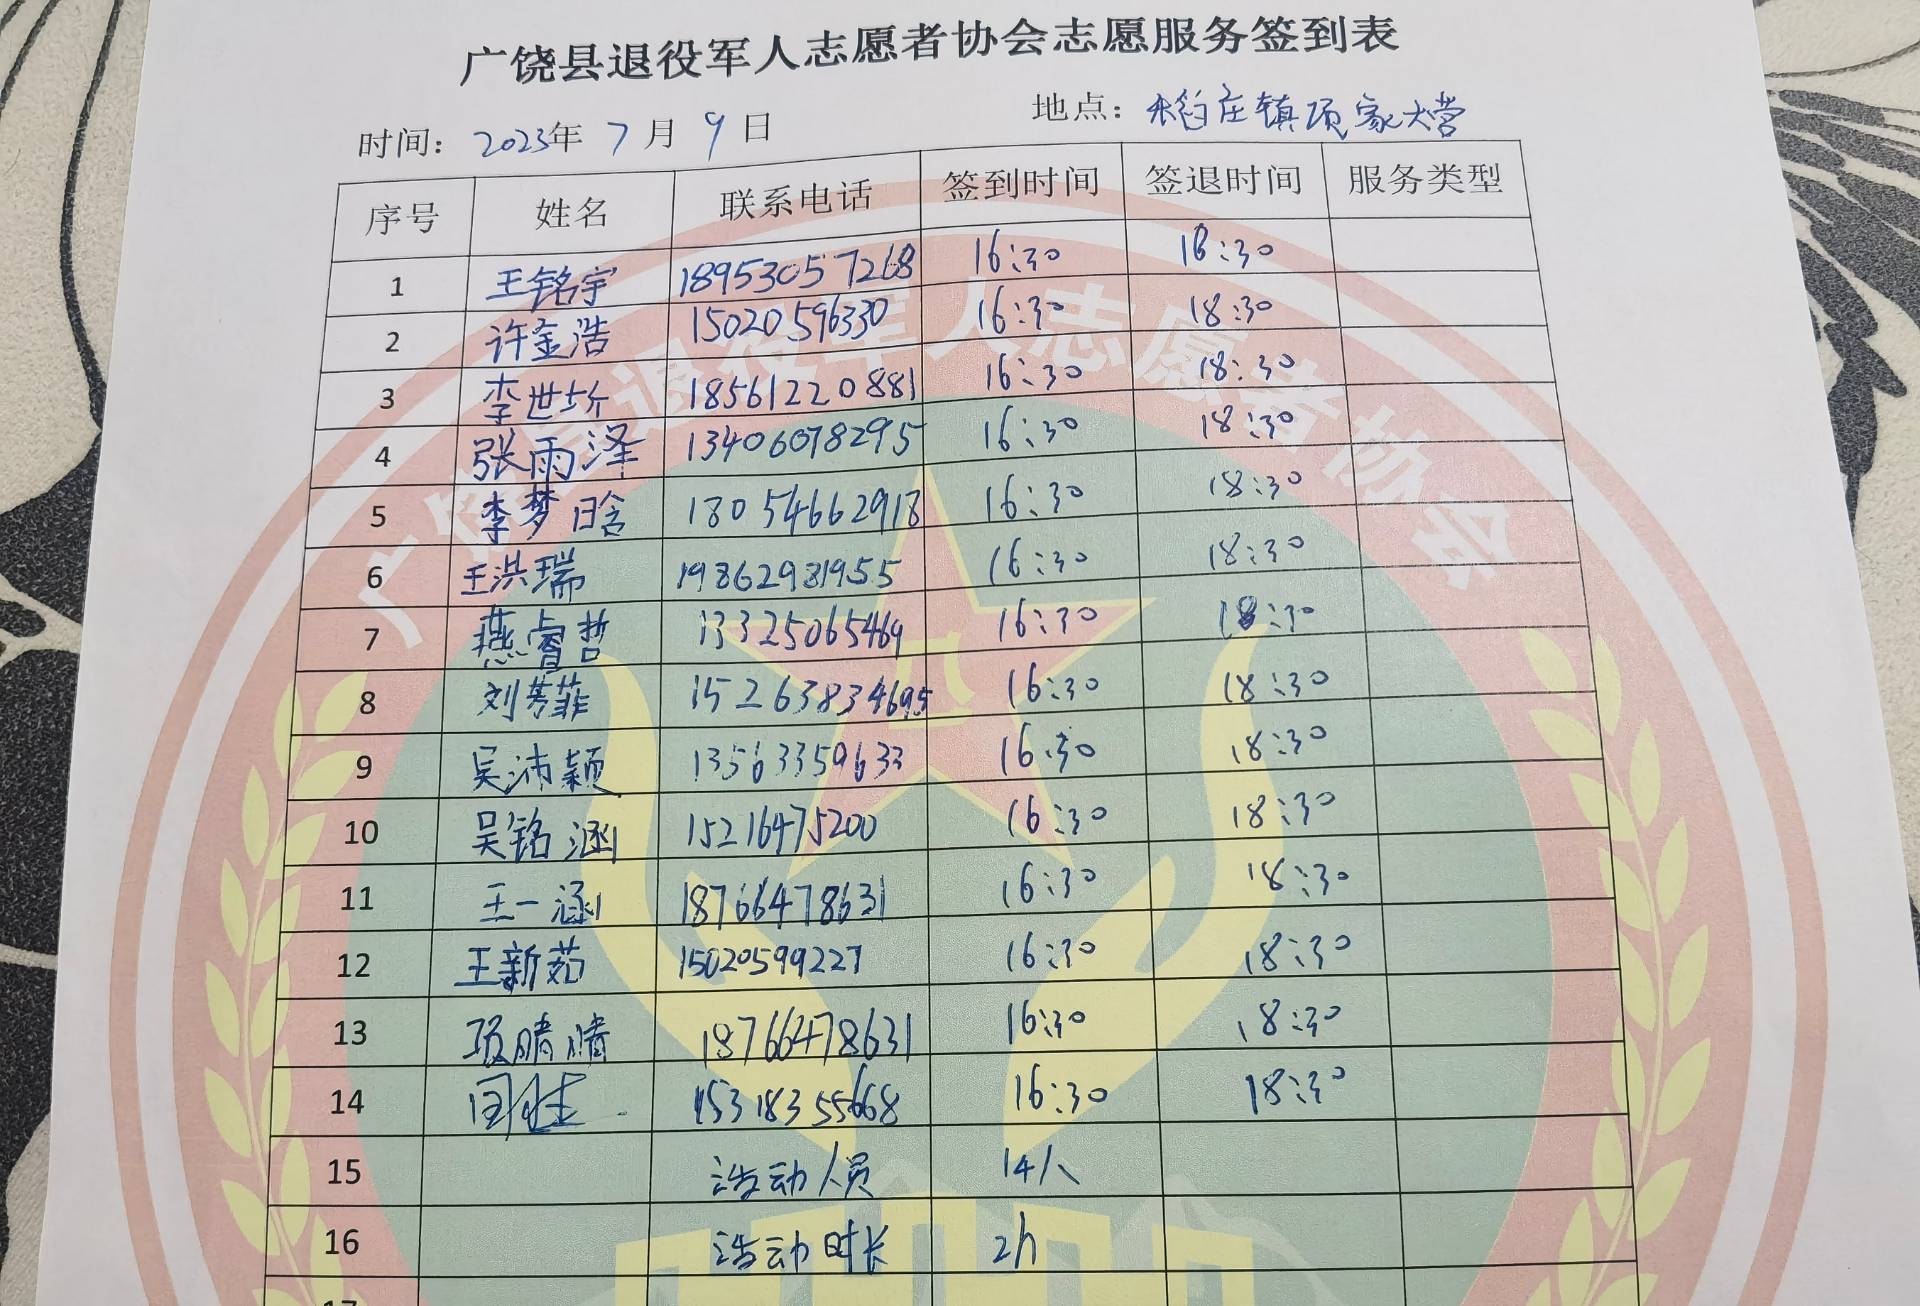 广饶县退役军人志愿者协会志愿服务签到表
时间: 2023年 7 月 9 日 地点: 稻庄镇项家大营
序号 姓名 联系电话 签到时间 签退时间 服务类型
1 王铭宇 18953057268 16:30 18:30
2 许金浩 15020596330 16:30 18:30
3 李世圻 18561220881 16:30 18:30
4 张雨泽 13406078295 16:30 18:30
5 李梦晗 18054662918 16:30 18:30
6 王洪瑞 19862981955 16:30 18:30
7 燕睿哲 13325065469 16:30 18:30
8 刘芳菲 15263834695 16:30 18:30
9 吴沛颖 13563359633 16:30 18:30
10 吴铭涵 15216475200 16:30 18:30
11 王一涵 18766478631 16:30 18:30
12 王新茹 15020599227 16:30 18:30
13 项晴晴 18766478631 16:30 18:30
14 15318355668 16:30 18:30
15 活动人员 14人
16 活动时长 2h
17
广饶县退役军人志愿者协会